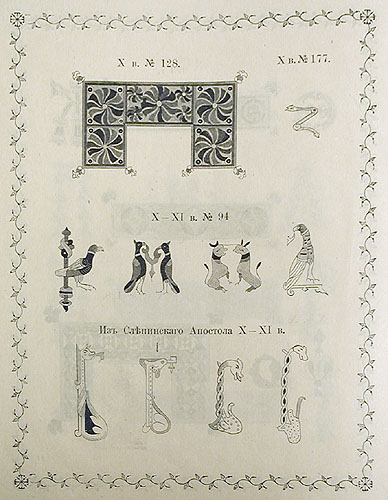 X в. № 128.
X в. № 177.
X—XI в. № 94
Изъ Слѣпинскаго Апостола X—XI в.